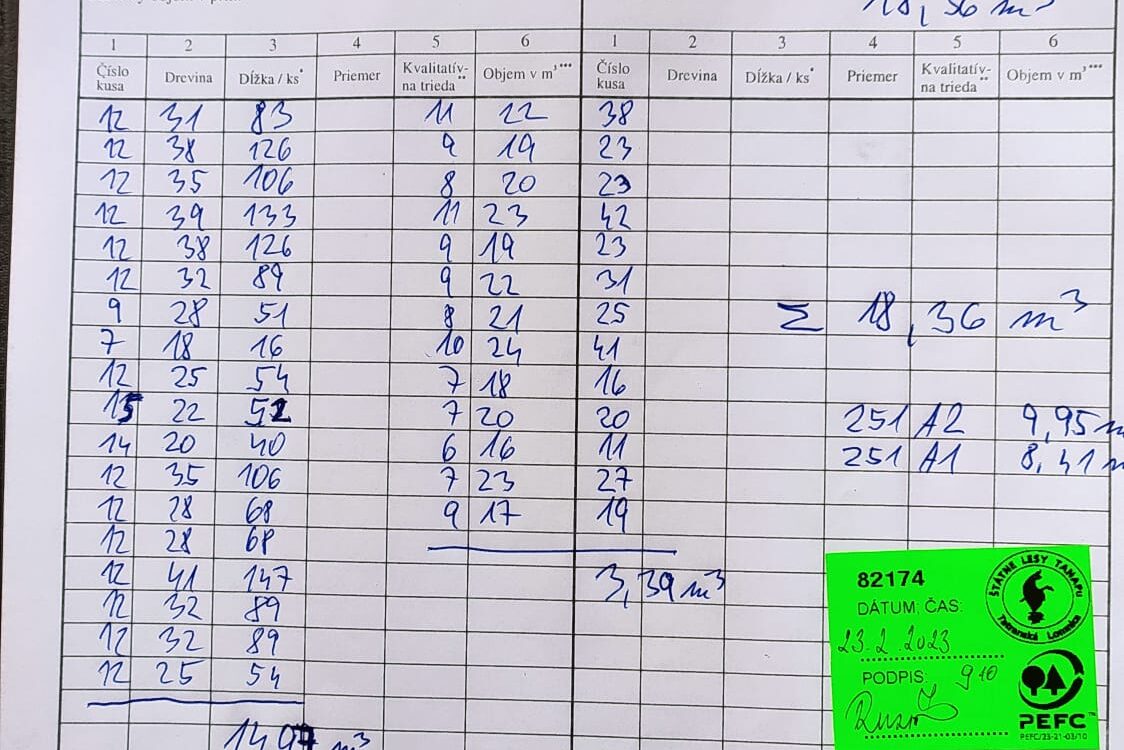 18,36 m³
1 2 3 4 5 6 1 2 3 4 5 6
Číslo kusa Drevina Dĺžka / ks* Priemer Kvalitatív- na trieda** Objem v m³*** Číslo kusa Drevina Dĺžka / ks* Priemer Kvalitatív- na trieda** Objem v m³***
12 31 83 11 22 38
12 38 126 9 19 23
12 35 106 8 20 23
12 39 133 11 23 42
12 38 126 9 19 23
12 32 89 9 22 31
9 28 51 8 21 25 Σ 18,36 m³
7 18 16 10 24 41
12 25 54 7 18 16
15 22 52 7 20 20 251 A2 9,95 m
14 20 40 6 16 11 251 A1 8,41 m
12 35 106 7 23 27
12 28 68 9 17 19
12 28 68
12 41 147 3,39 m³
12 32 89
12 32 89
12 25 54
14 97 m³
82174
DÁTUM, ČAS:
23.2.2023
PODPIS: 9 10
ŠTÁTNE LESY TANAPU
Tatranská Lomnica
PEFC™
PEFC/23-21-03/10